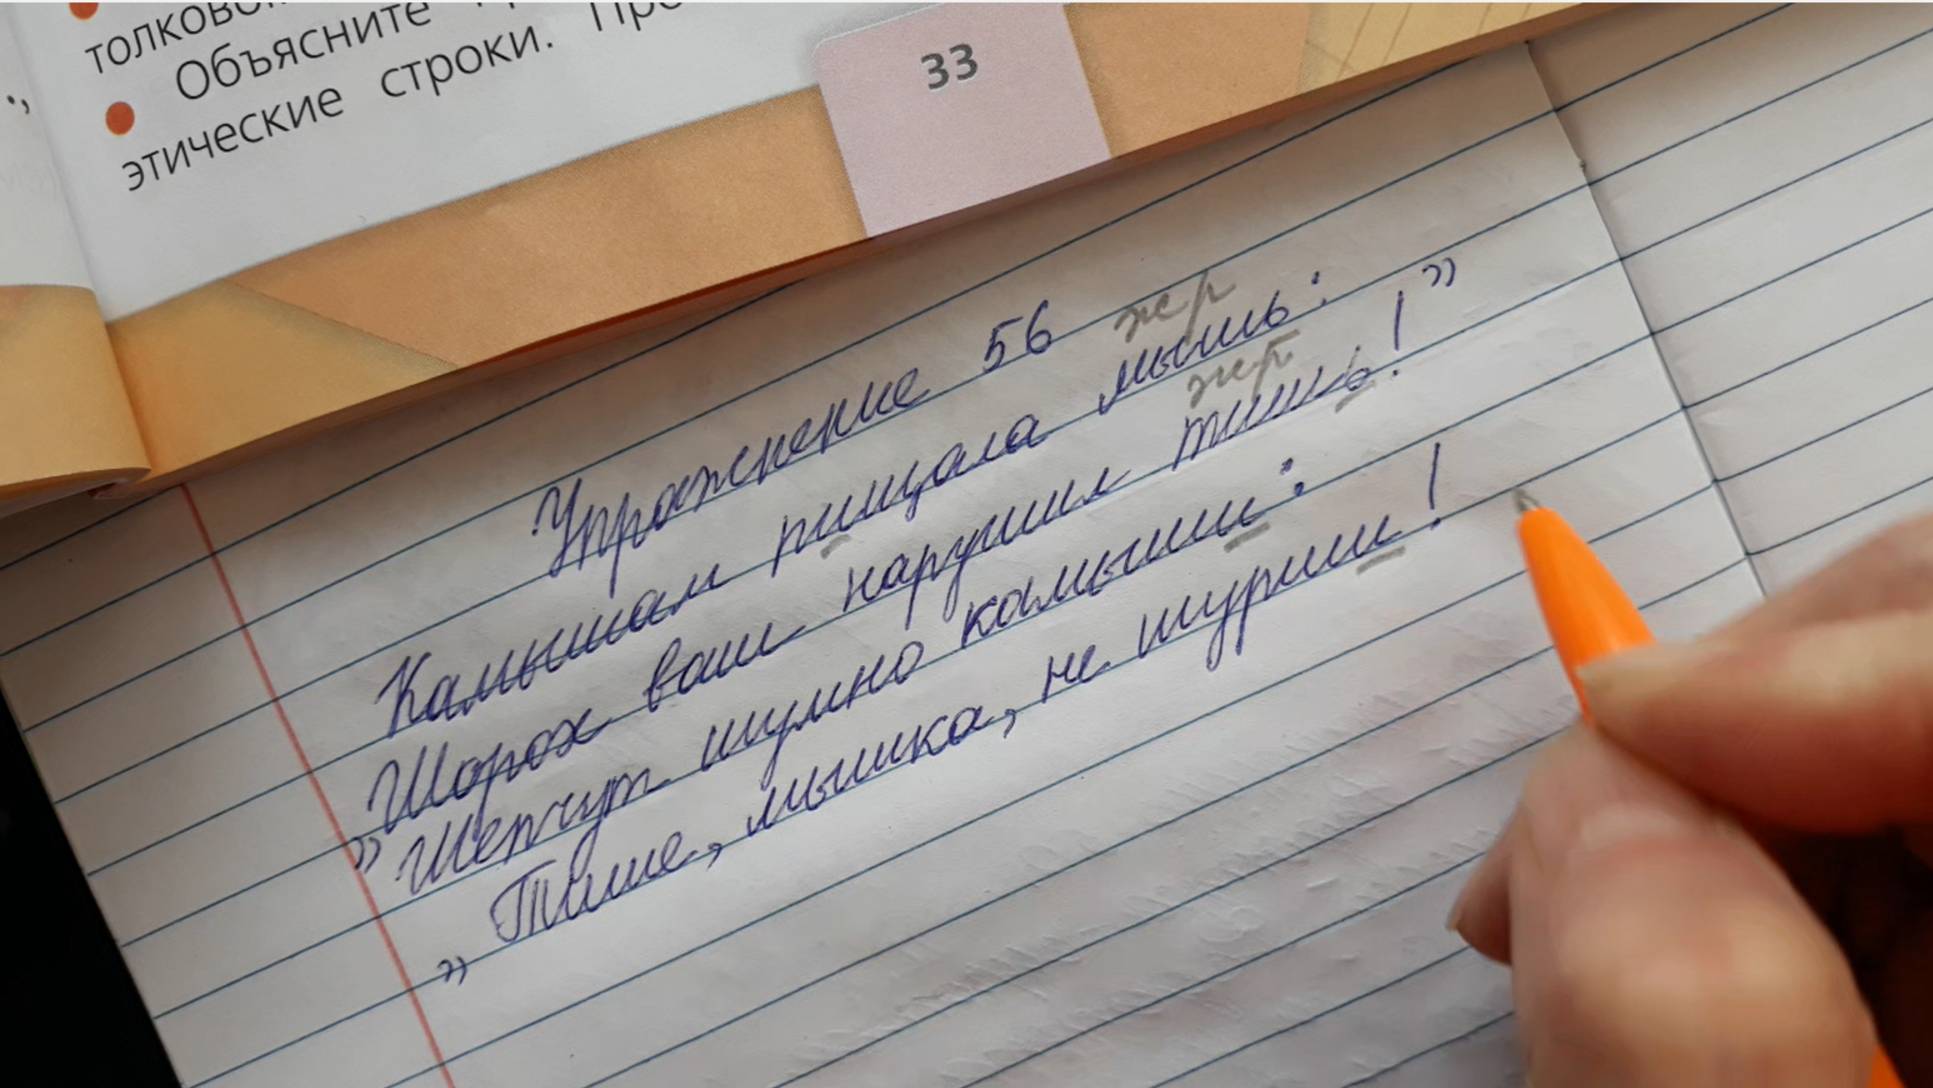 толково
Объясните
этические строки. Про
33
Упражнение 56
жр
Камышам пищала мышь:
жр
„Шорох ваш нарушил тишь!”
Шепчут шумно камыши:
„Тише, мышка, не шурши!